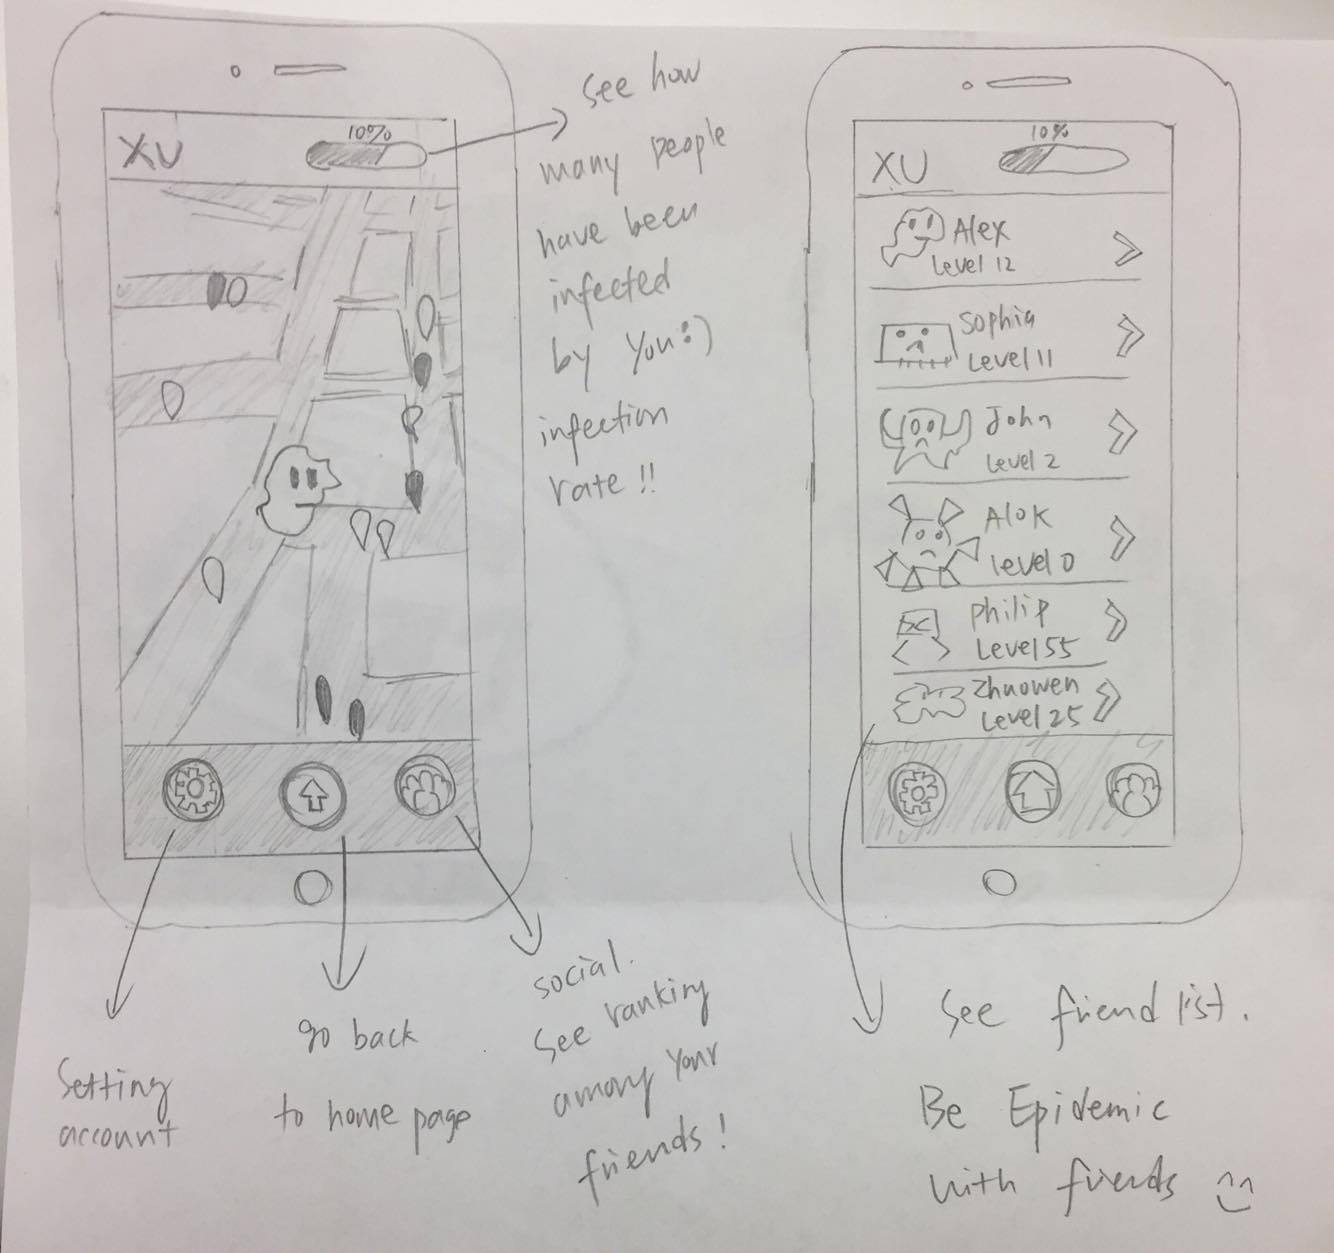 XU
10%
see how
many people
have been
infected
by you:)
infection
rate!!
setting
account
go back
to home page
social.
see ranking
among your
friends!
XU
10%
Alex
Level 12
Sophia
Level 11
John
Level 2
Alok
Level 0
philip
Level 55
Zhuowen
Level 25
see friend list.
Be Epidemic
with friends